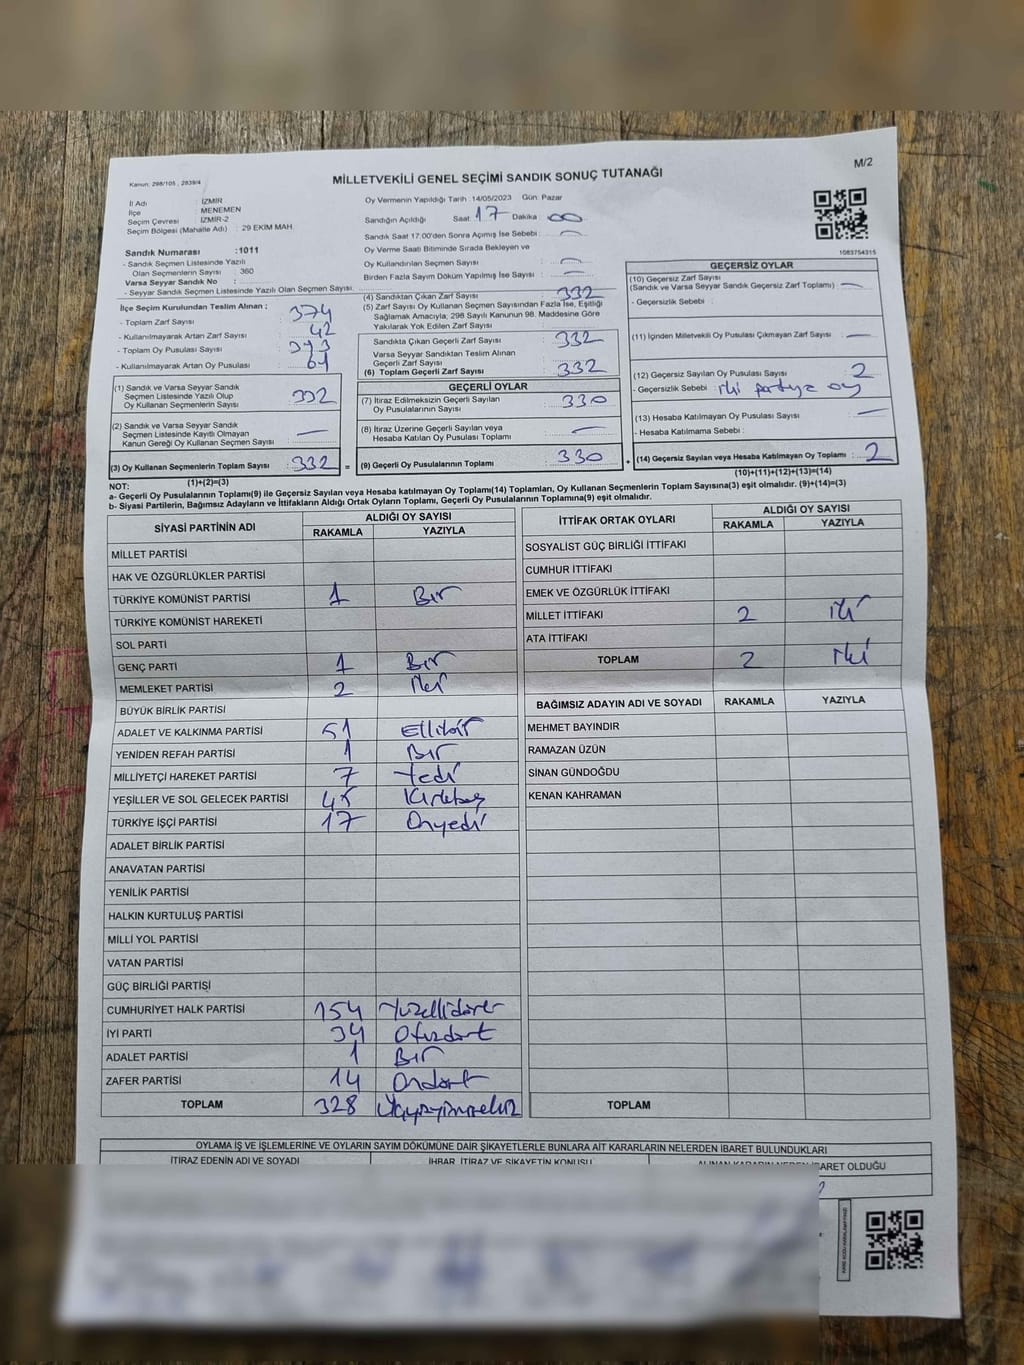 M/2
Kanun: 298/105 , 2839/4
MİLLETVEKİLİ GENEL SEÇİMİ SANDIK SONUÇ TUTANAĞI
İl Adı : İZMİR
İlçe : MENEMEN
Seçim Çevresi : İZMİR-2
Seçim Bölgesi (Mahalle Adı) : 29 EKİM MAH.
Sandık Numarası :1011
- Sandık Seçmen Listesinde Yazılı
Olan Seçmenlerin Sayısı : 360
Varsa Seyyar Sandık No :
- Seyyar Sandık Seçmen Listesinde Yazılı Olan Seçmen Sayısı:
Oy Vermenin Yapıldığı Tarih :14/05/2023 Gün: Pazar
Sandığın Açıldığı Saat: 17 Dakika : 00
Sandık Saat 17:00'den Sonra Açımış İse Sebebi : —
Oy Verme Saati Bitiminde Sırada Bekleyen ve
Oy Kullandırılan Seçmen Sayısı : —
Birden Fazla Sayım Döküm Yapılmış İse Sayısı : —
1083754315
İlçe Seçim Kurulundan Teslim Alınan ;
- Toplam Zarf Sayısı : 374
- Kullanılmayarak Artan Zarf Sayısı : 42
- Toplam Oy Pusulası Sayısı : 393
- Kullanılmayarak Artan Oy Pusulası : 61
(1) Sandık ve Varsa Seyyar Sandık
Seçmen Listesinde Yazılı Olup
Oy Kullanan Seçmenlerin Sayısı : 332
(2) Sandık ve Varsa Seyyar Sandık
Seçmen Listesinde Kayıtlı Olmayan
Kanun Gereği Oy Kullanan Seçmen Sayısı : —
(3) Oy Kullanan Seçmenlerin Toplam Sayısı : 332 =
(1)+(2)=(3)
(4) Sandıktan Çıkan Zarf Sayısı : 332
(5) Zarf Sayısı Oy Kullanan Seçmen Sayısından Fazla İse, Eşitliği
Sağlamak Amacıyla, 298 Sayılı Kanunun 98. Maddesine Göre
Yakılarak Yok Edilen Zarf Sayısı :
Sandıkta Çıkan Geçerli Zarf Sayısı : 332
Varsa Seyyar Sandıktan Teslim Alınan
Geçerli Zarf Sayısı :
(6) Toplam Geçerli Zarf Sayısı : 332
GEÇERLİ OYLAR
(7) İtiraz Edilmeksizin Geçerli Sayılan
Oy Pusulalarının Sayısı : 330
(8) İtiraz Üzerine Geçerli Sayılan veya
Hesaba Katılan Oy Pusulası Toplamı : —
(9) Geçerli Oy Pusulalarının Toplamı : 330 +
GEÇERSİZ OYLAR
(10) Geçersiz Zarf Sayısı
(Sandık ve Varsa Seyyar Sandık Geçersiz Zarf Toplamı) : —
- Geçersizlik Sebebi :
(11) İçinden Milletvekili Oy Pusulası Çıkmayan Zarf Sayısı : —
(12) Geçersiz Sayılan Oy Pusulası Sayısı : 2
- Geçersizlik Sebebi : iki partiye oy
(13) Hesaba Katılmayan Oy Pusulası Sayısı : —
- Hesaba Katılmama Sebebi :
(14) Geçersiz Sayılan veya Hesaba Katılmayan Oy Toplamı : 2
(10)+(11)+(12)+(13)=(14)
NOT:
a- Geçerli Oy Pusulalarının Toplamı(9) ile Geçersiz Sayılan veya Hesaba katılmayan Oy Toplamı(14) Toplamları, Oy Kullanan Seçmenlerin Toplam Sayısına(3) eşit olmalıdır. (9)+(14)=(3)
b- Siyasi Partilerin, Bağımsız Adayların ve İttifakların Aldığı Ortak Oyların Toplamı, Geçerli Oy Pusulalarının Toplamına(9) eşit olmalıdır.
SİYASİ PARTİNİN ADI ALDIĞI OY SAYISI
RAKAMLA YAZIYLA
MİLLET PARTİSİ
HAK VE ÖZGÜRLÜKLER PARTİSİ
TÜRKİYE KOMÜNİST PARTİSİ 1 Bir
TÜRKİYE KOMÜNİST HAREKETİ
SOL PARTİ
GENÇ PARTİ 1 Bir
MEMLEKET PARTİSİ 2 İki
BÜYÜK BİRLİK PARTİSİ
ADALET VE KALKINMA PARTİSİ 51 Ellibir
YENİDEN REFAH PARTİSİ 1 Bir
MİLLİYETÇİ HAREKET PARTİSİ 7 Yedi
YEŞİLLER VE SOL GELECEK PARTİSİ 45 Kırkbeş
TÜRKİYE İŞÇİ PARTİSİ 17 Onyedi
ADALET BİRLİK PARTİSİ
ANAVATAN PARTİSİ
YENİLİK PARTİSİ
HALKIN KURTULUŞ PARTİSİ
MİLLİ YOL PARTİSİ
VATAN PARTİSİ
GÜÇ BİRLİĞİ PARTİSİ
CUMHURİYET HALK PARTİSİ 154 Yüzellidört
İYİ PARTİ 34 Otuzdört
ADALET PARTİSİ 1 Bir
ZAFER PARTİSİ 14 Ondört
TOPLAM 328 Üçyüzyirmisekiz
İTTİFAK ORTAK OYLARI ALDIĞI OY SAYISI
RAKAMLA YAZIYLA
SOSYALİST GÜÇ BİRLİĞİ İTTİFAKI
CUMHUR İTTİFAKI
EMEK VE ÖZGÜRLÜK İTTİFAKI
MİLLET İTTİFAKI 2 iki
ATA İTTİFAKI
TOPLAM 2 iki
BAĞIMSIZ ADAYIN ADI VE SOYADI RAKAMLA YAZIYLA
MEHMET BAYINDIR
RAMAZAN ÜZÜN
SİNAN GÜNDOĞDU
KENAN KAHRAMAN
TOPLAM
OYLAMA İŞ VE İŞLEMLERİNE VE OYLARIN SAYIM DÖKÜMÜNE DAİR ŞİKAYETLERLE BUNLARA AİT KARARLARIN NELERDEN İBARET BULUNDUKLARI
İTİRAZ EDENİN ADI VE SOYADI İHBAR, İTİRAZ VE ŞİKAYETİN KONUSU ALINAN KARARIN NEDEN İBARET OLDUĞU